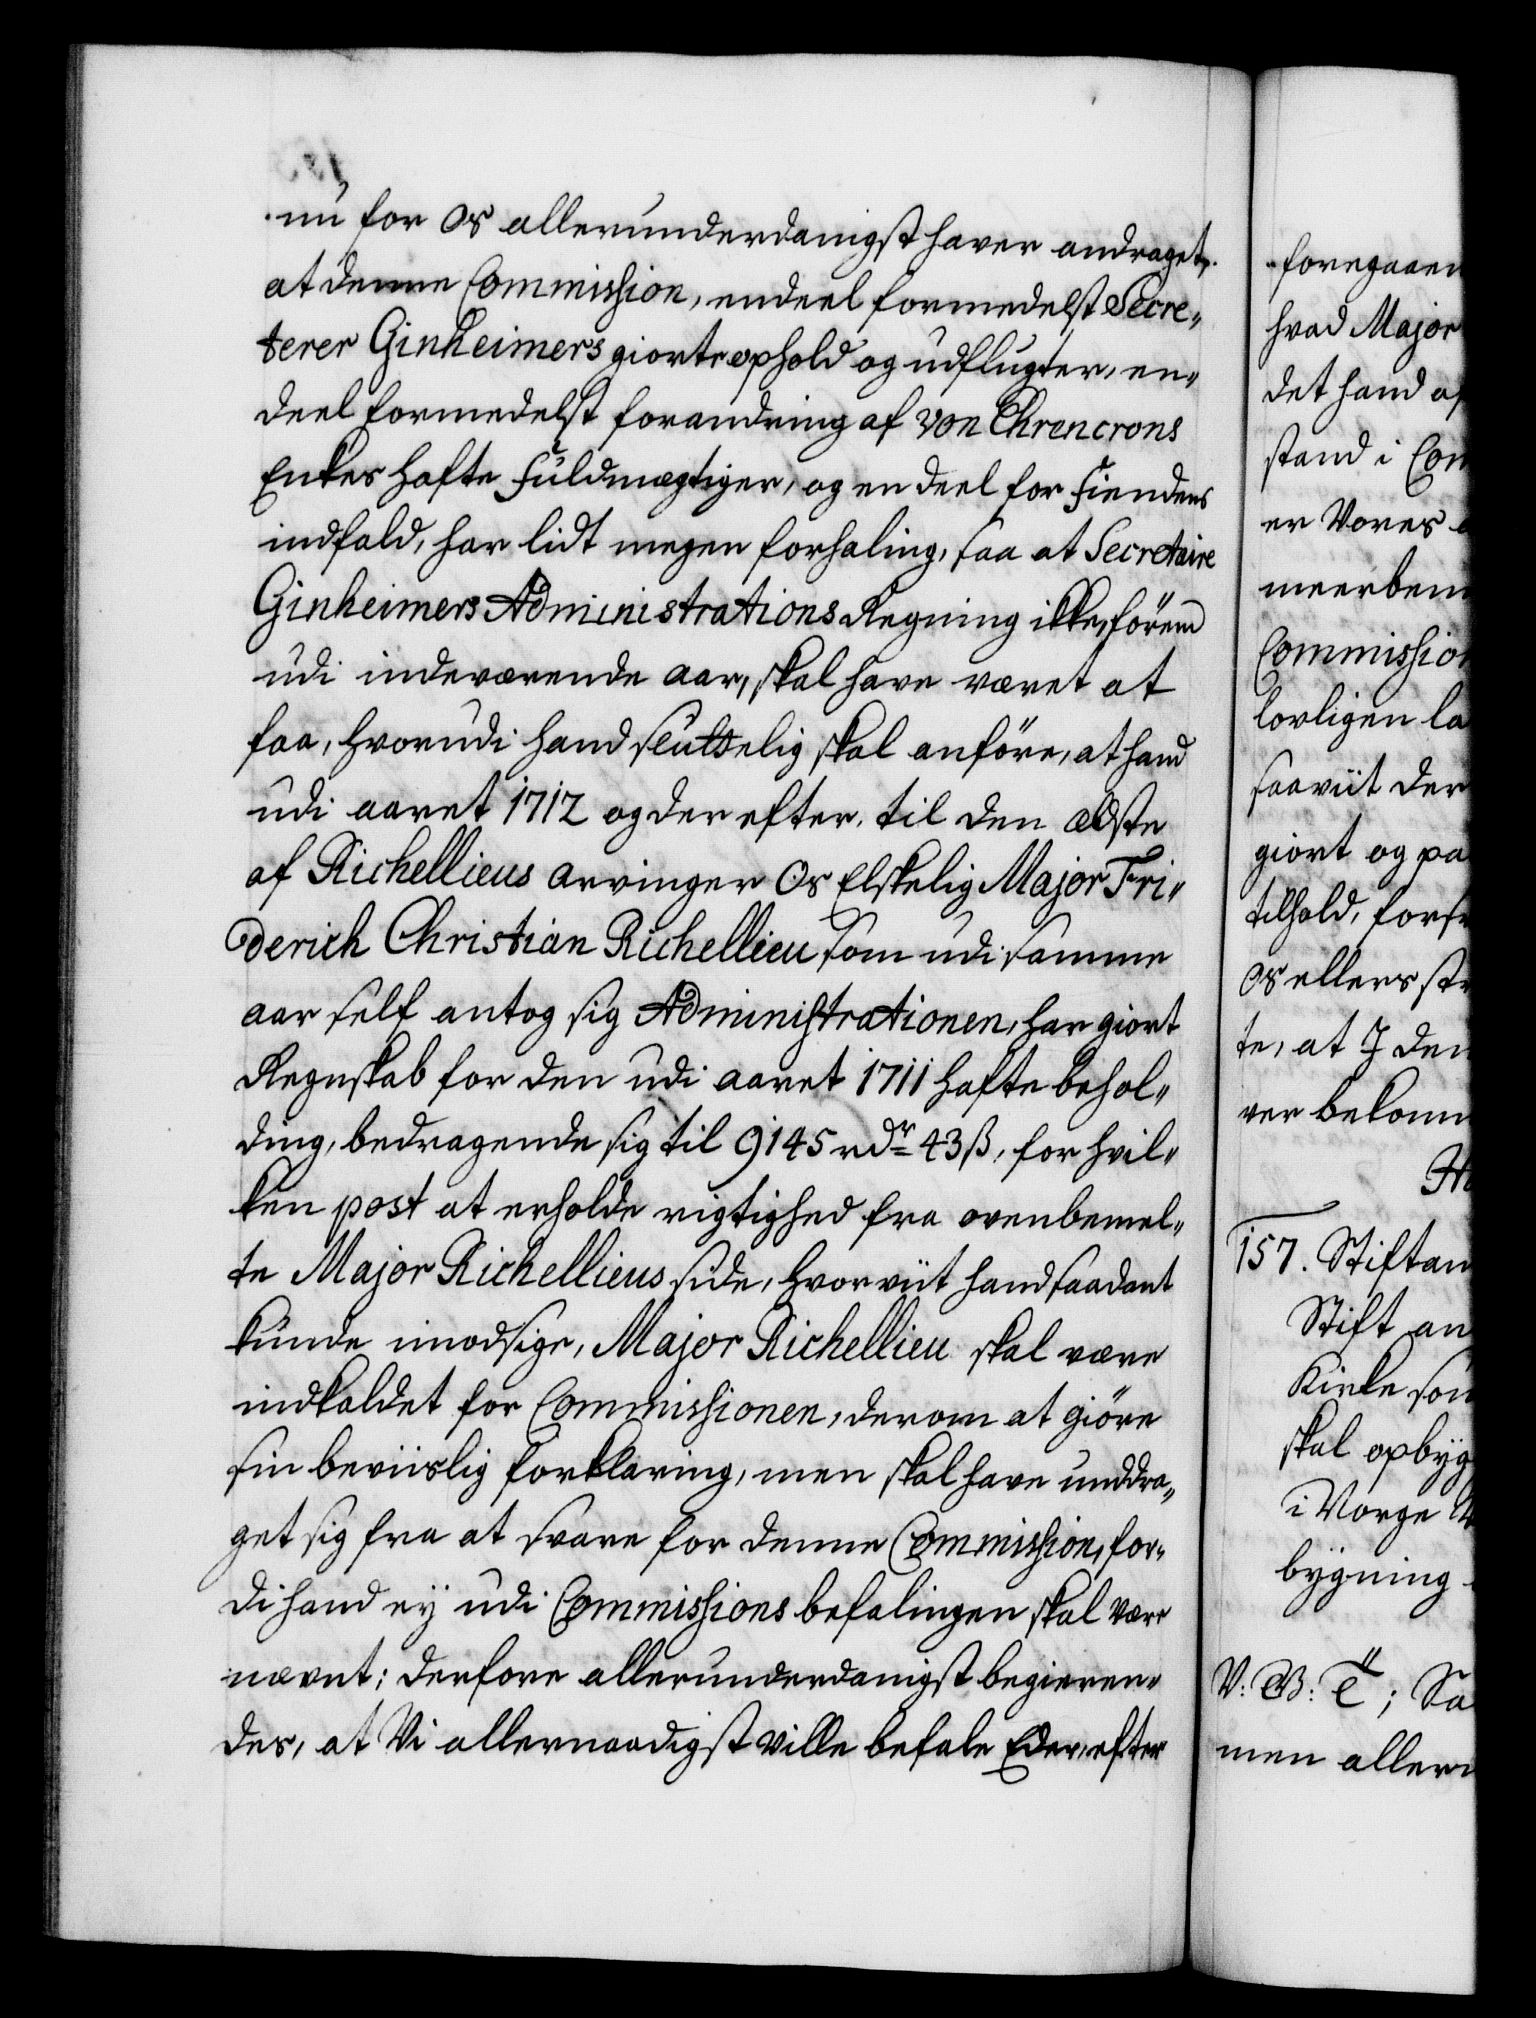 nu for Os allerunderdanigst haver andraget,
at denne Commission, endeel formedelst Secre-
terer Ginheimers giorte ophold og udflugter, en-
deel formedelst forandring af von Ehrencrons
Enkes hafte Fuldmægtiger, og en deel for Fiendens
indfald, har lidt megen forhaling, saa at Secretaire
Ginheimers Administrations Regning ikke, förend
udi indeværende aar, skal have været at
faa, hvorudi hand sluttelig skal anföre, at hand
udi aaret 1712 og der efter, til den ældste
af Richellieus arvinger Os Elskelig Major Fri-
derich Christian Richellieu som udi samme
aar self antog sig Administrationen, har giort
Regnskab for den udi aaret 1711 hafte behol-
ding, bedragende sig til 9145 rdr 43 ß, for hvil-
ken post at erholde rigtighed fra ovenbemel-
te Major Richellieus side, hvorviit hand saadant
kunde imodsige, Major Richellieu skal være
indkaldet for Commissionen, derom at giöre
sin beviislig forklaring, men skal have unddra-
get sig fra at svare for denne Commission, for-
di hand ey udi Commissions befalingen skal være
nævnt; derfore allerunderdanigst begieren-
des, at Vi allernaadigst ville befale Eder, efter
foregaaen
hvad Major
det hand af
stand i Com
er Vores
meerbem
Commission
lovligen la
saaviit der
giort og pa
tilhold, for
Os ellers st
te, at I den
ver bekom
157. Stiftam
Stift an
Kirke som
skal opbyg
i Norge
bygning
V: G: T; Sa
men allern